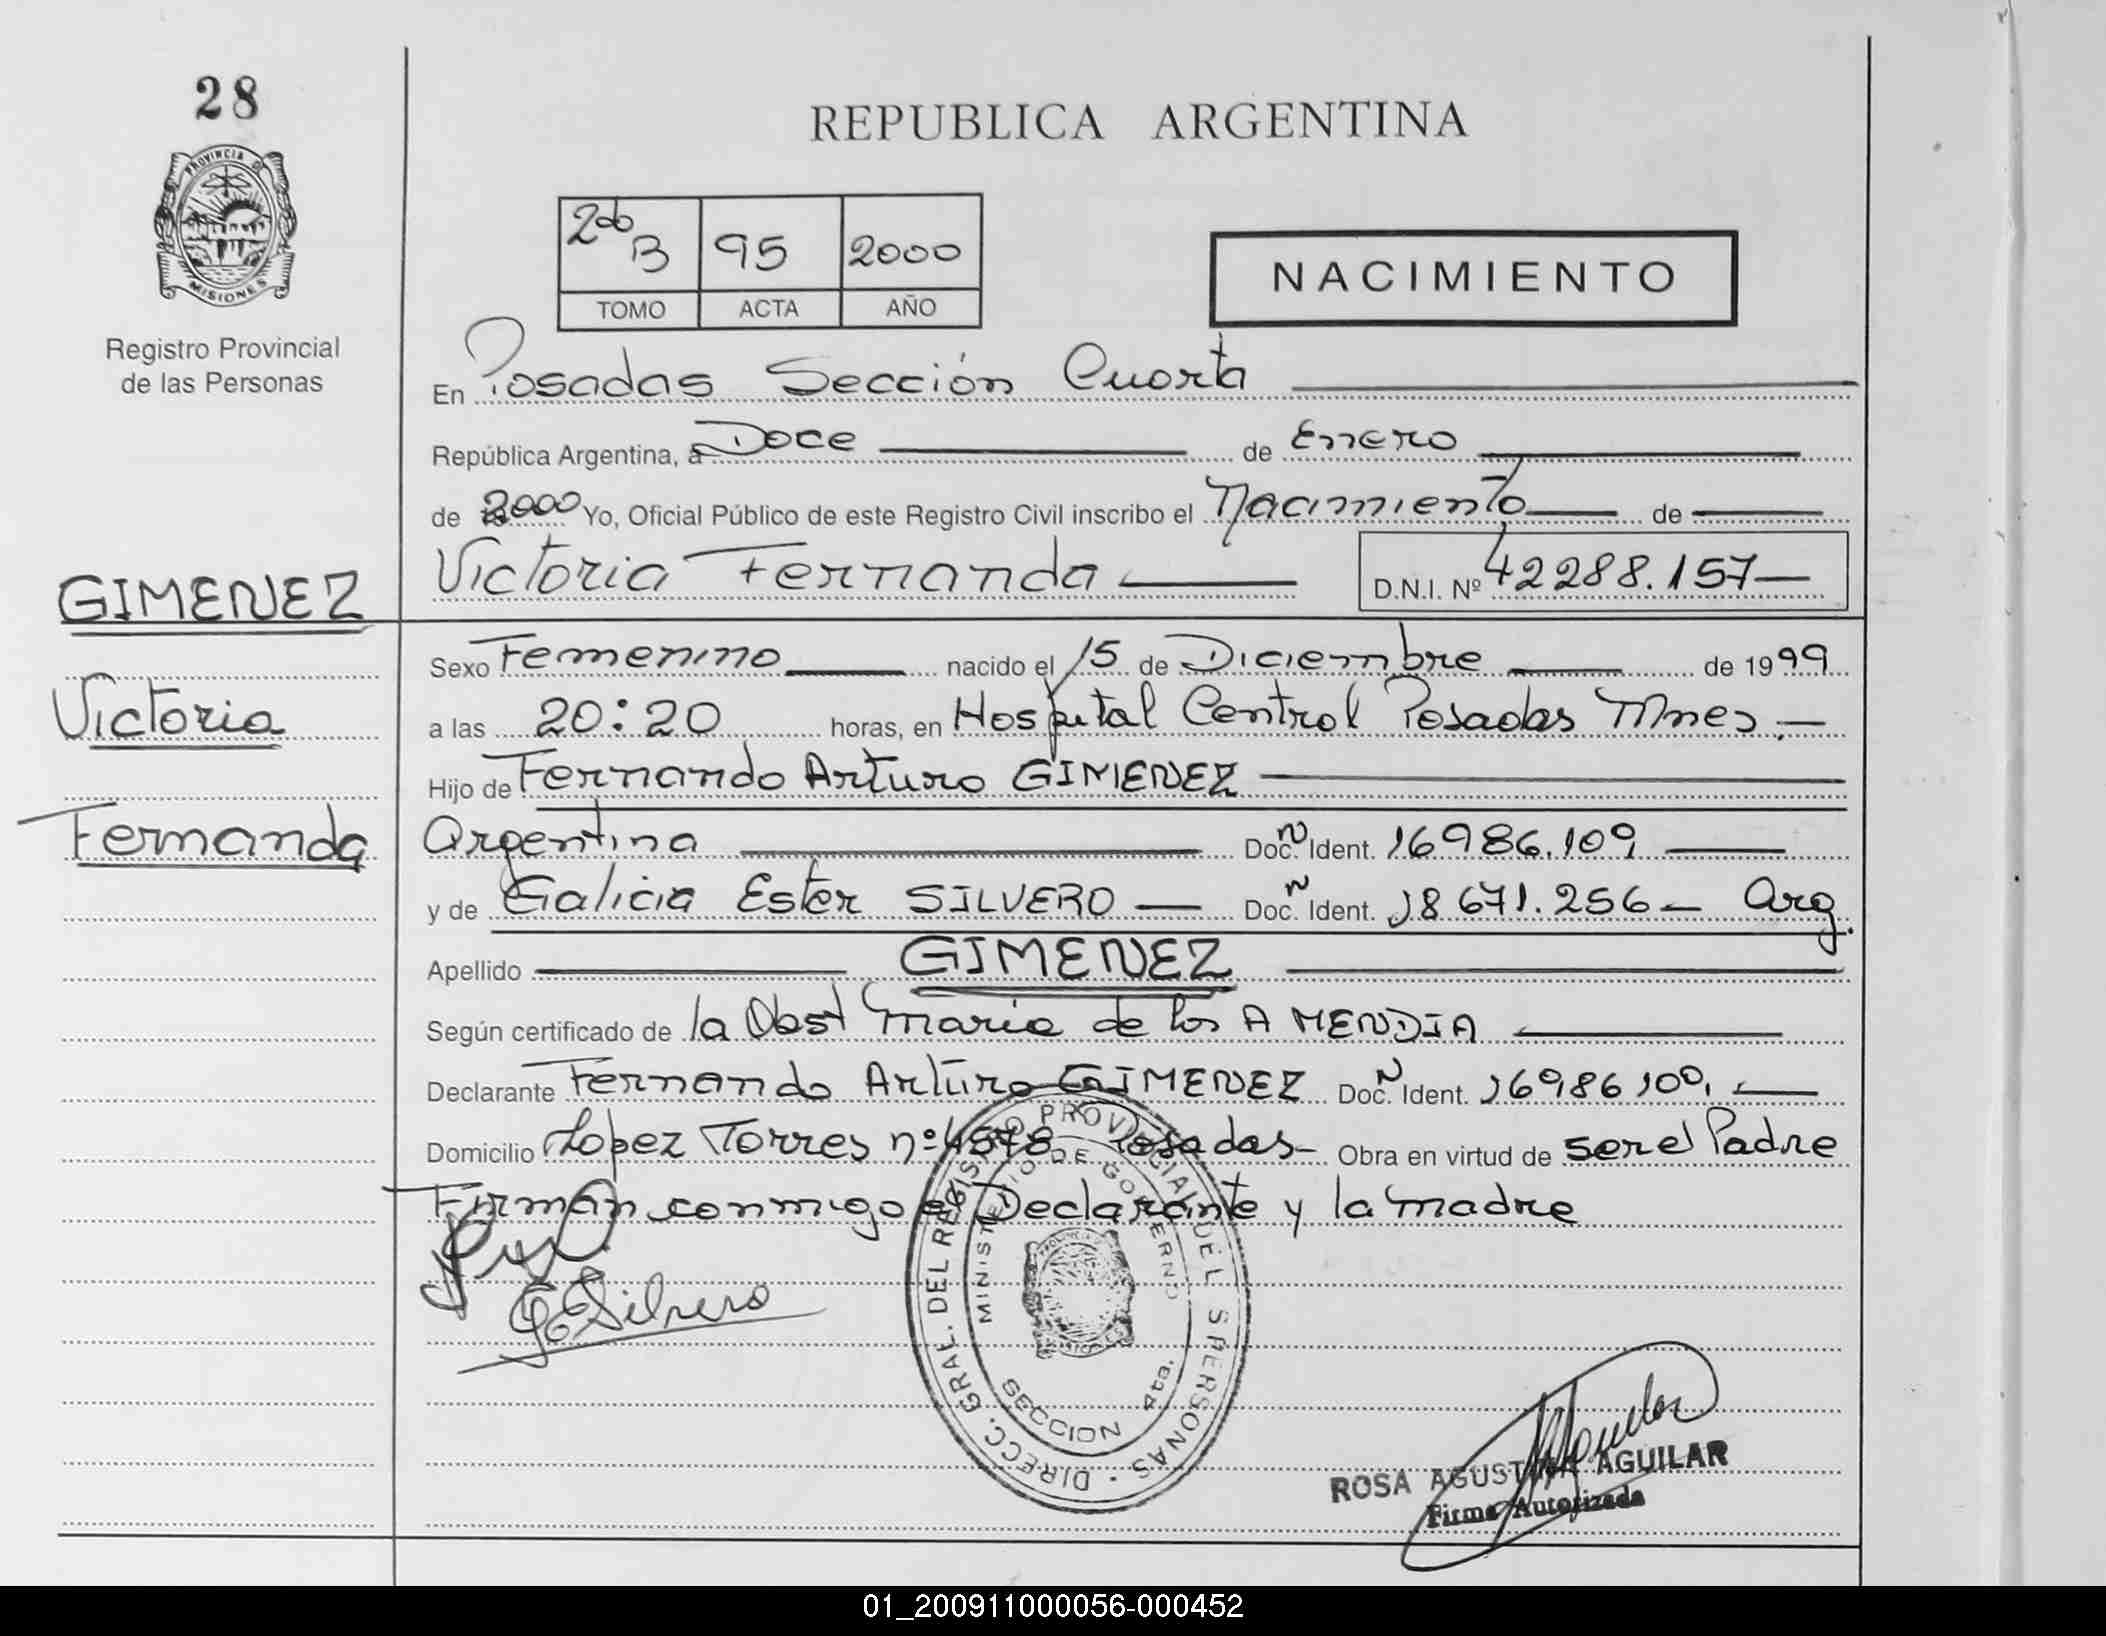 28
PROVINCIA DE
MISIONES
Registro Provincial
de las Personas
REPUBLICA ARGENTINA
2do B 95 2000
TOMO ACTA AÑO
NACIMIENTO
En Posadas Sección Cuarta
República Argentina, a Doce de Enero
de 2000 Yo, Oficial Público de este Registro Civil inscribo el Nacimiento de
Victoria Fernanda D.N.I. Nº 42288.157
GIMENEZ
Victoria
Fernanda
Sexo Femenino nacido el 15 de Diciembre de 1999
a las 20:20 horas, en Hospital Central Posadas Mnes.
Hijo de Fernando Arturo GIMENEZ
Argentina Doc. N Ident. 16986.109
y de Galicia Ester SILVERO Doc. N Ident. 18671.256 Arg.
Apellido GIMENEZ
Según certificado de la Obst Maria de los A MENDIA
Declarante Fernando Arturo GIMENEZ Doc. N Ident. 16986109
Domicilio Lopez Torres nº 4878 Posadas Obra en virtud de ser el Padre
Firman conmigo el Declarante y la madre
GESilvero
DIRECC. GRAL. DEL REGISTRO PROVINCIAL DE LAS PERSONAS
MINISTERIO DE GOBIERNO
SECCION 4ta.
Aguilar
ROSA AGUSTINA AGUILAR
Firma Autorizada
01_200911000056-000452